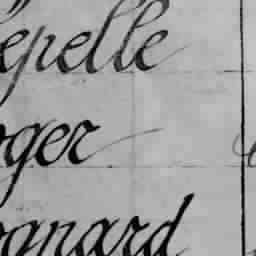 epelle
oger
ognard